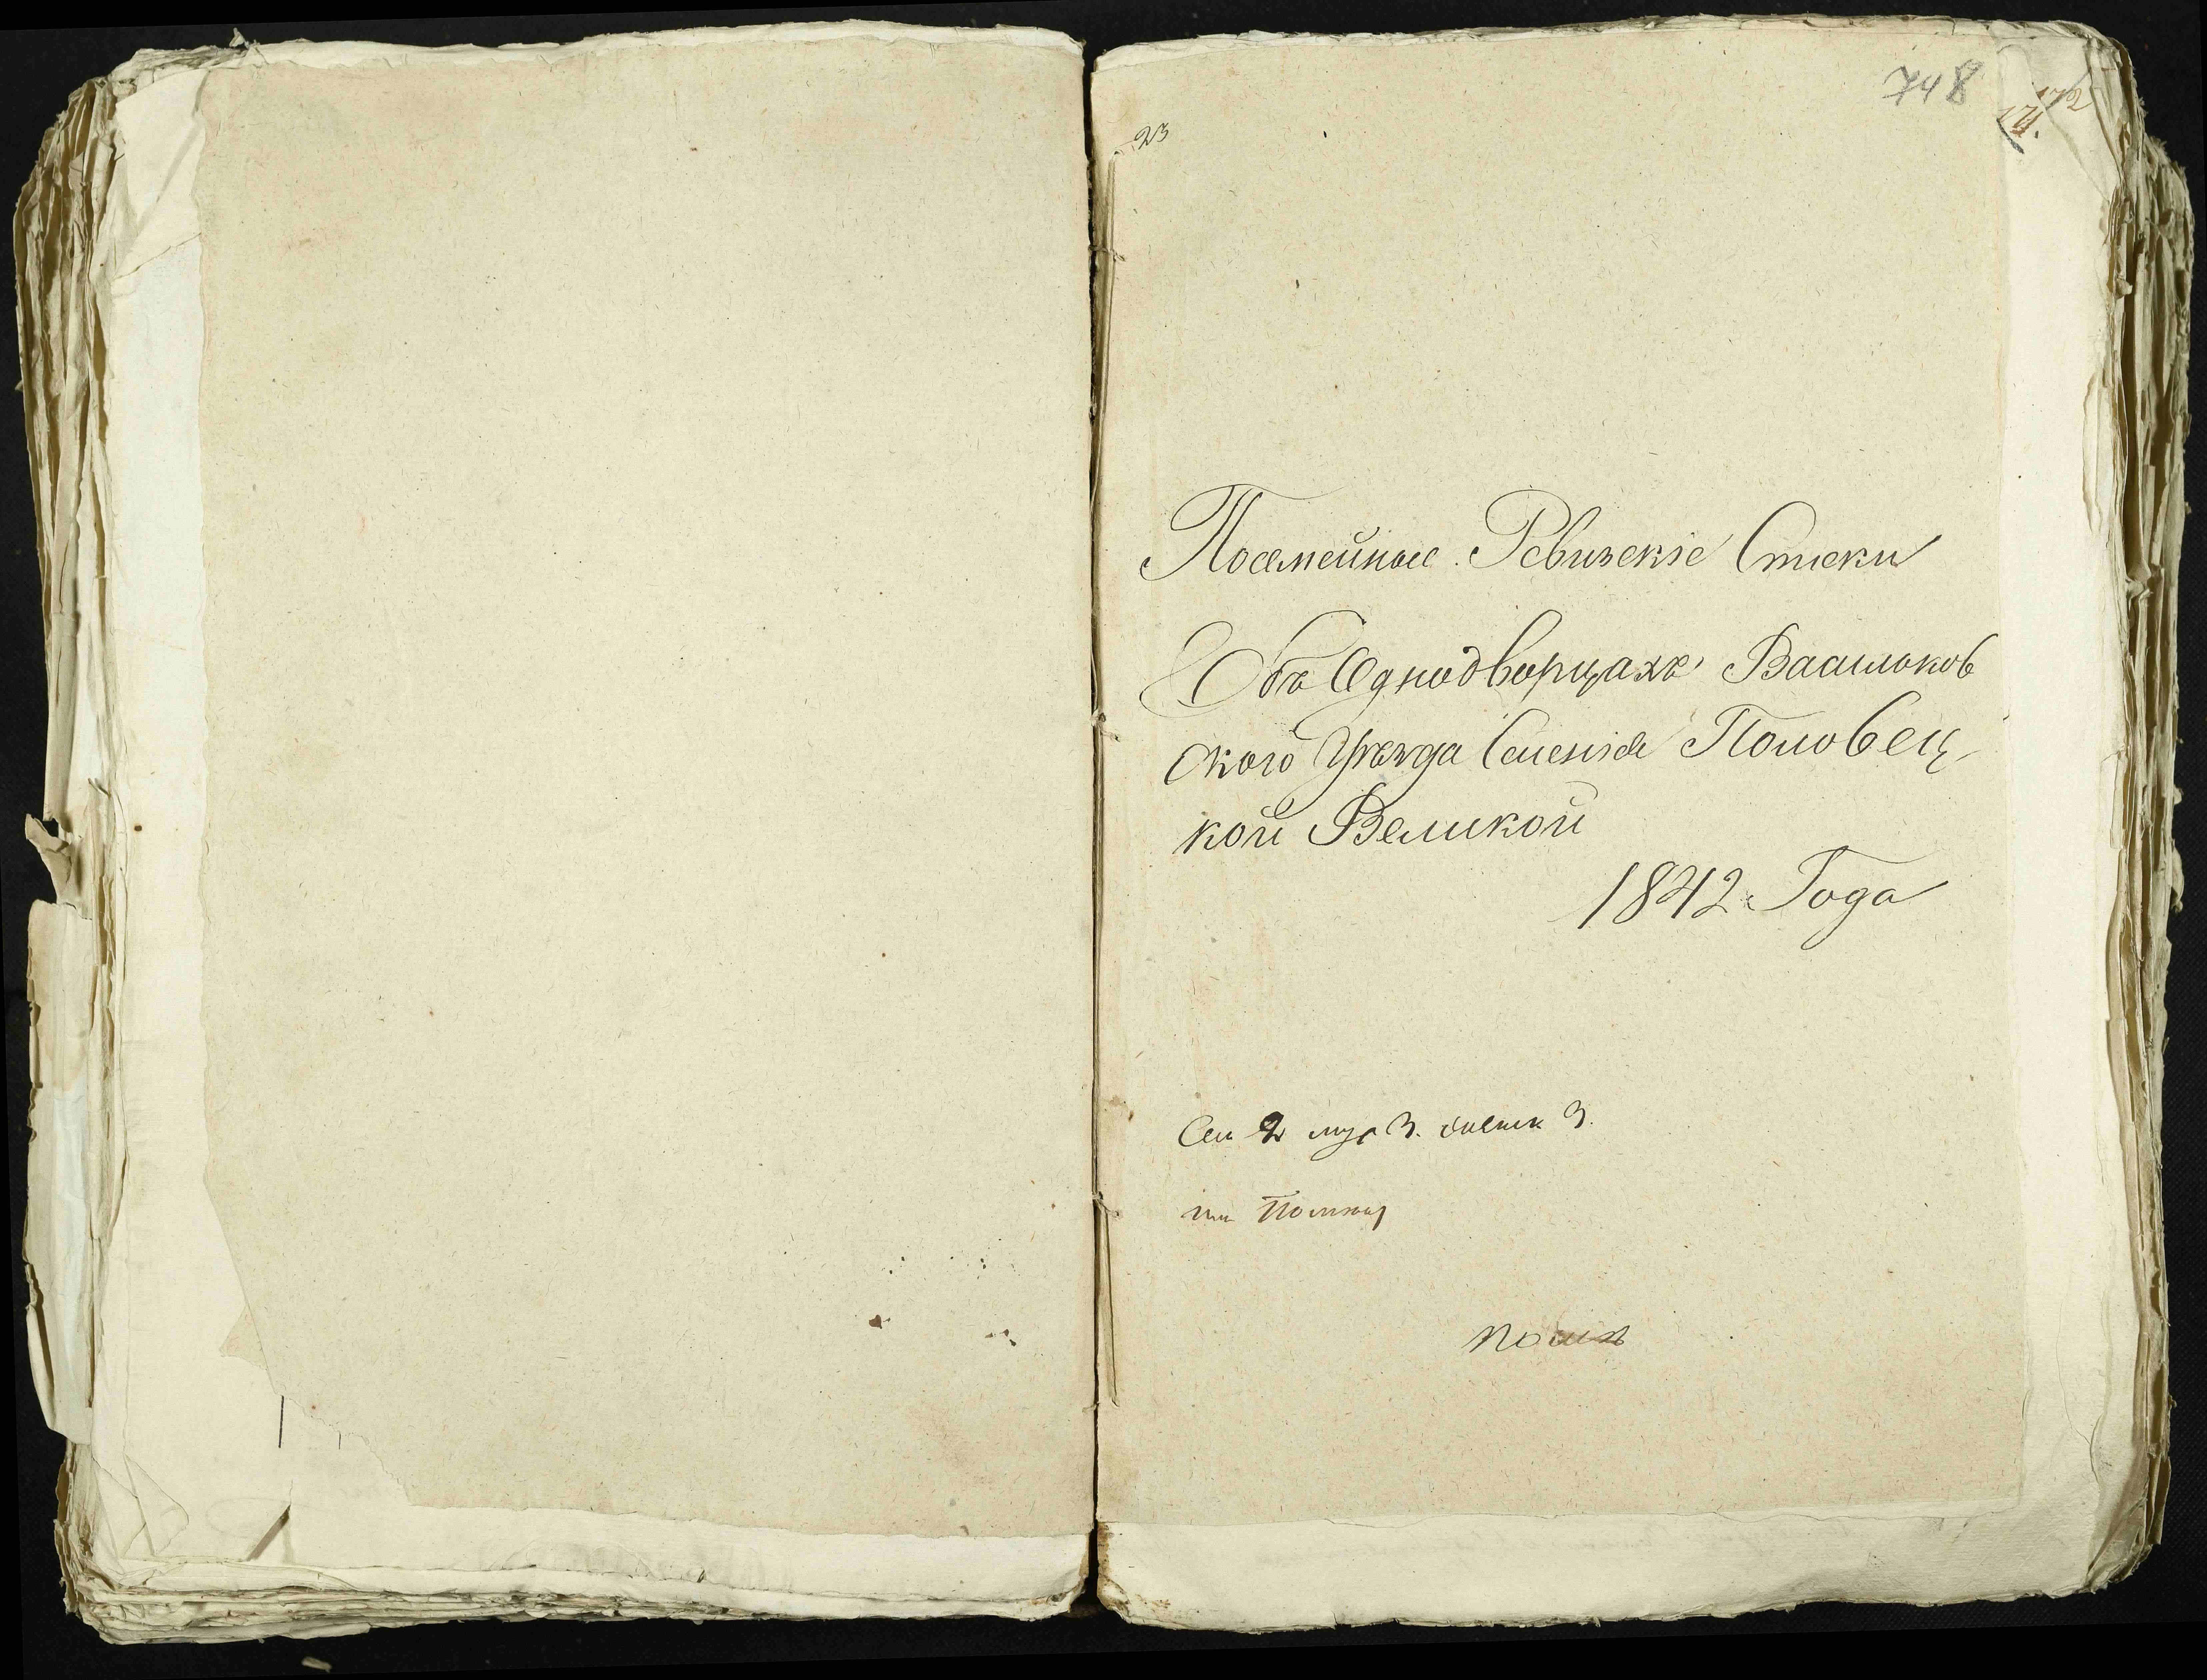 748
172
171.
23
Посемейные Ревизскіе Списки
Объ Однодворцахъ Васильков
ского Уѣзда Селенія Половец,
кой Великой
1842 Года
Сем 2 муж 3. женск 3.